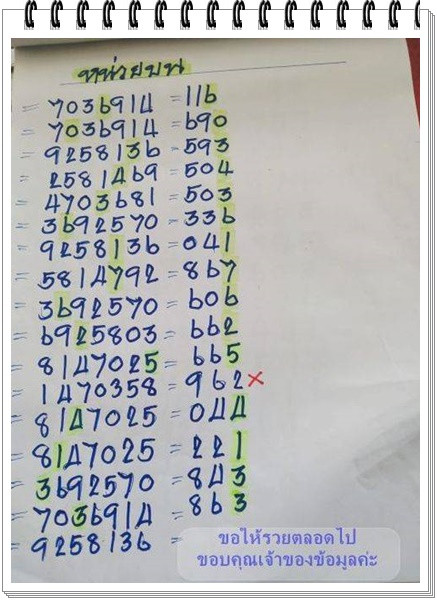 หน่วยบน
= 7036914 = 116
= 7036914 = 690
= 9258136 = 593
= 2581469 = 504
= 4703681 = 503
= 3692570 = 336
= 9258136 = 041
= 5814792 = 867
= 3692570 = 606
= 6925803 = 662
= 8147025 = 665
= 1470358 = 962 ×
= 8147025 = 044
= 8147025 = 221
= 3692570 = 843
= 7036914 = 863
= 9258136 =
ขอให้รวยตลอดไป
ขอบคุณเจ้าของข้อมูลค่ะ